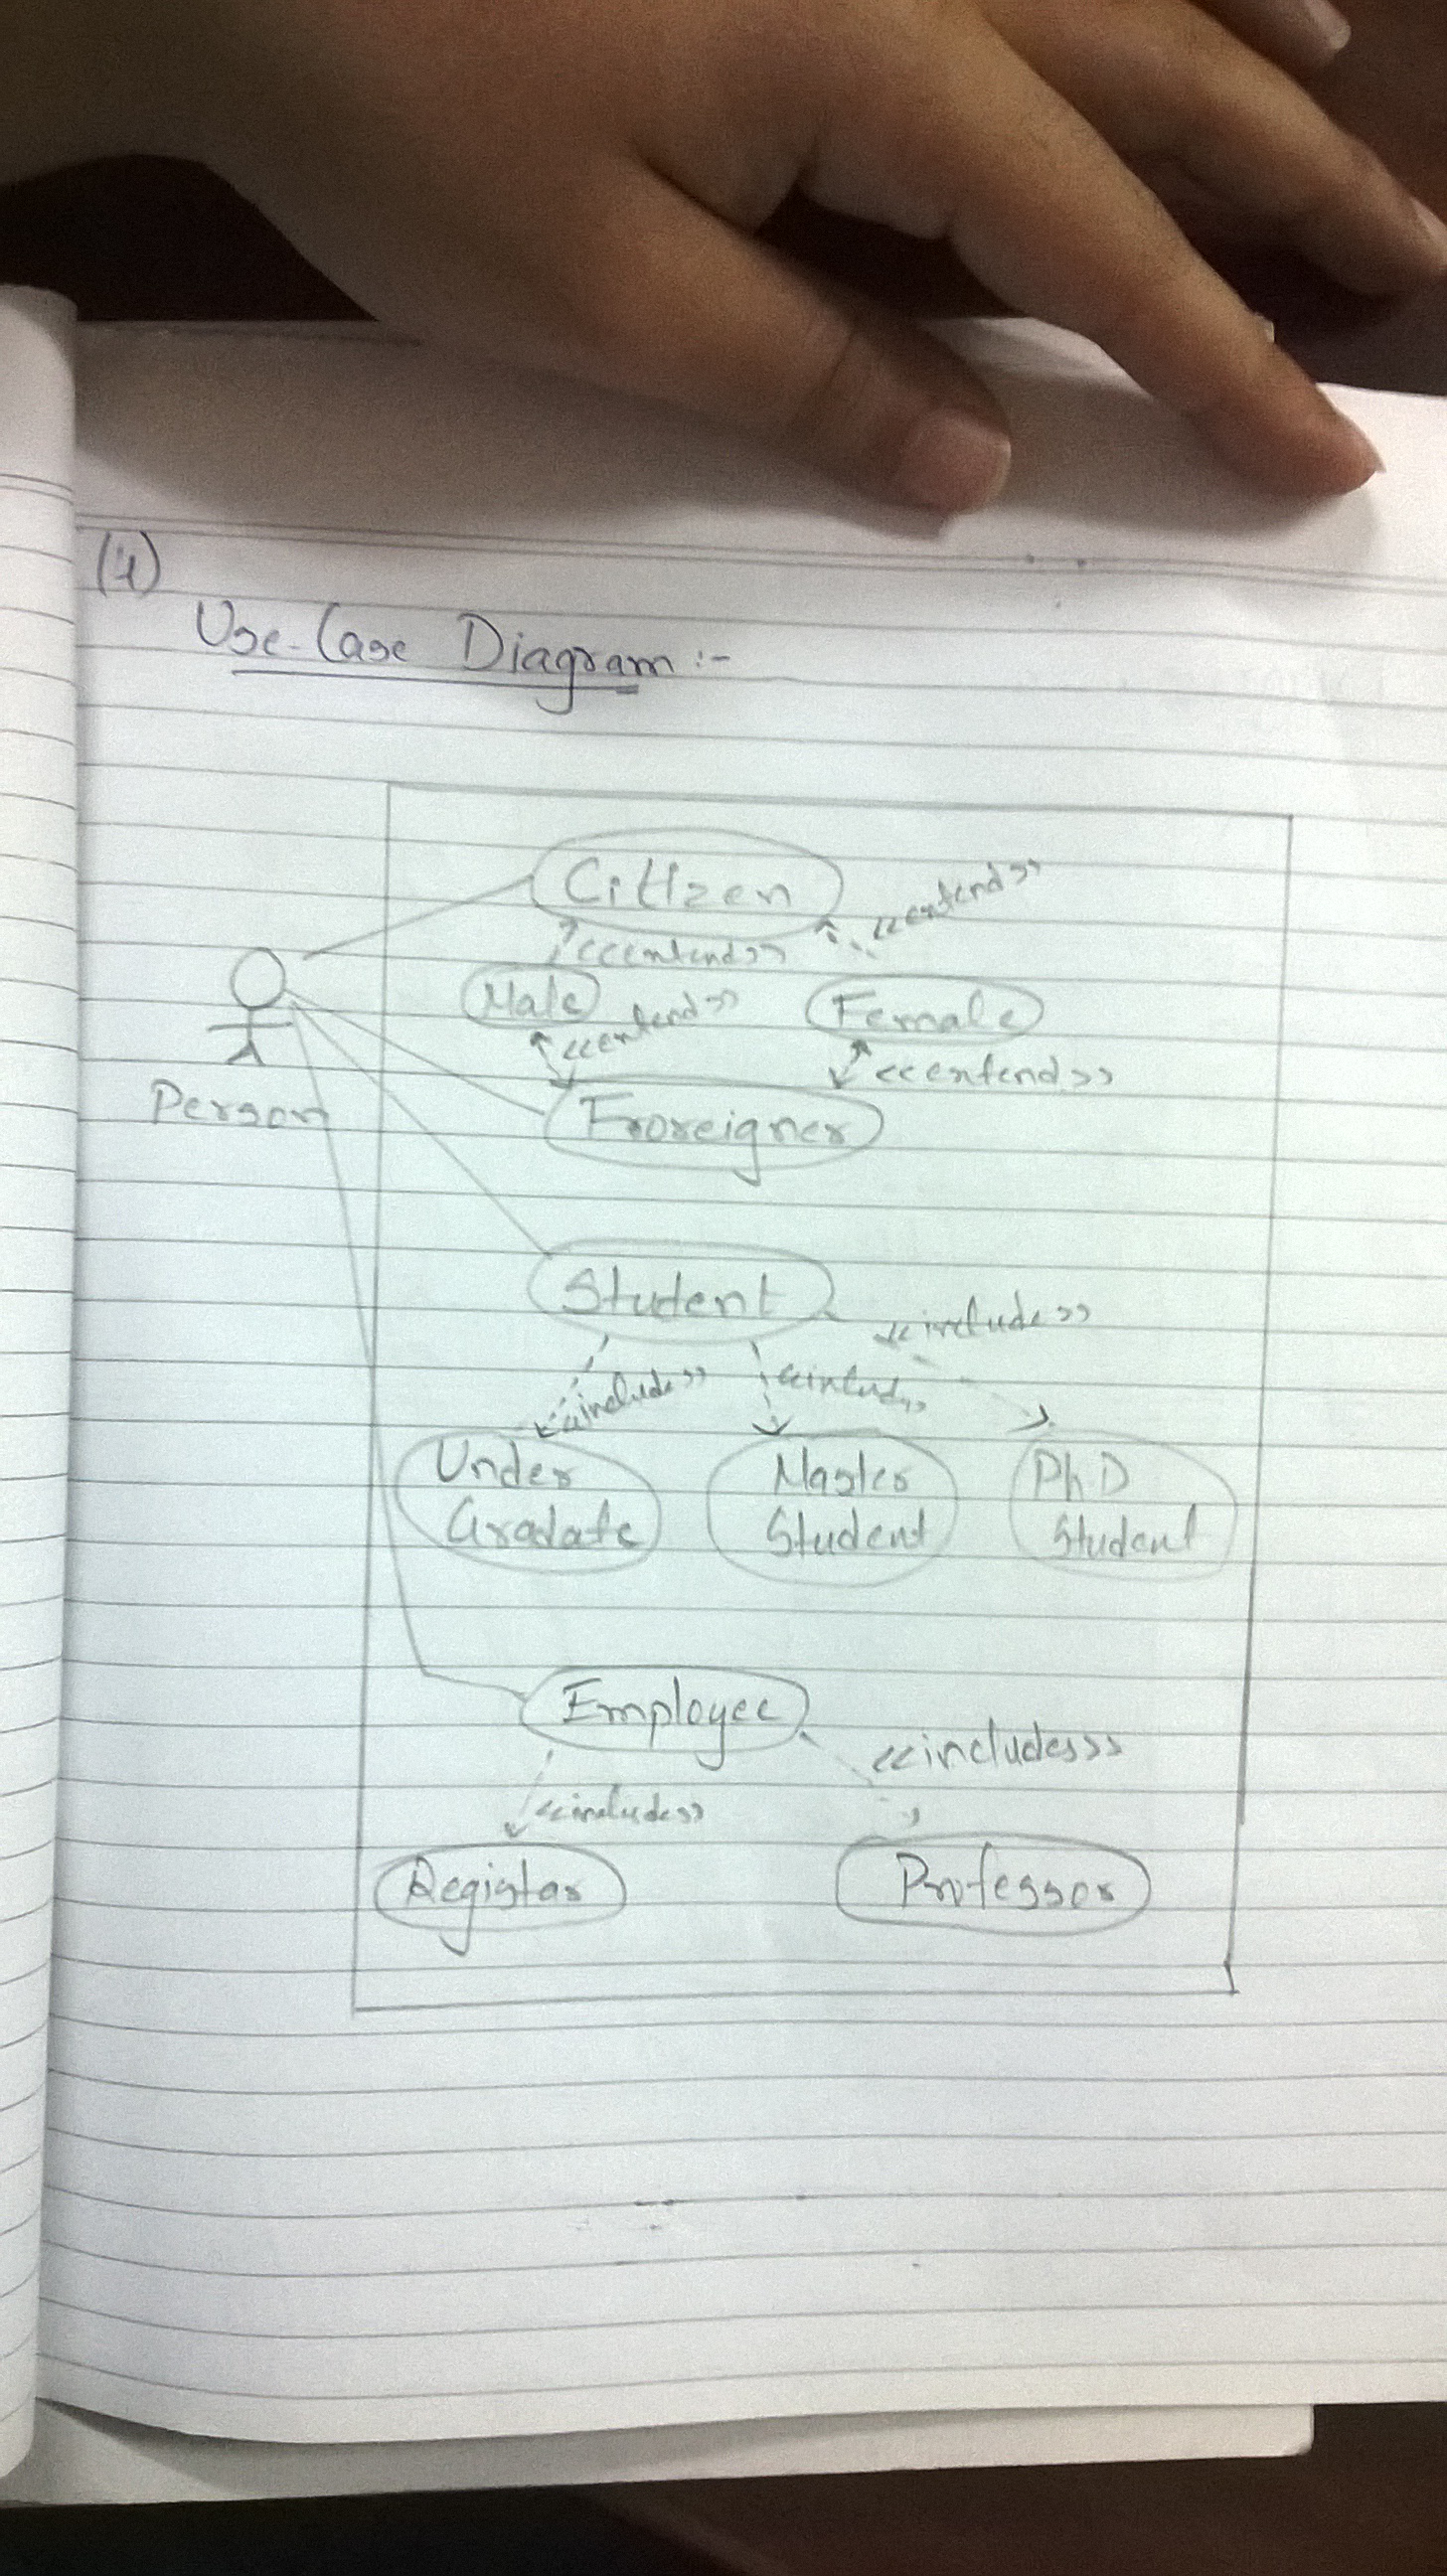 (4)
Use-Case Diagram :-
Citizen
<<extend>>
<<extend>>
Male
<<extend>>
Female
<<extend>>
Person
Froreigner
Student
<<include>>
<<include>>
<<includ>>
Under
Gradate
Master
Student
PhD
Student
Employee
<<includes>>
<<includes>>
Registar
Professor